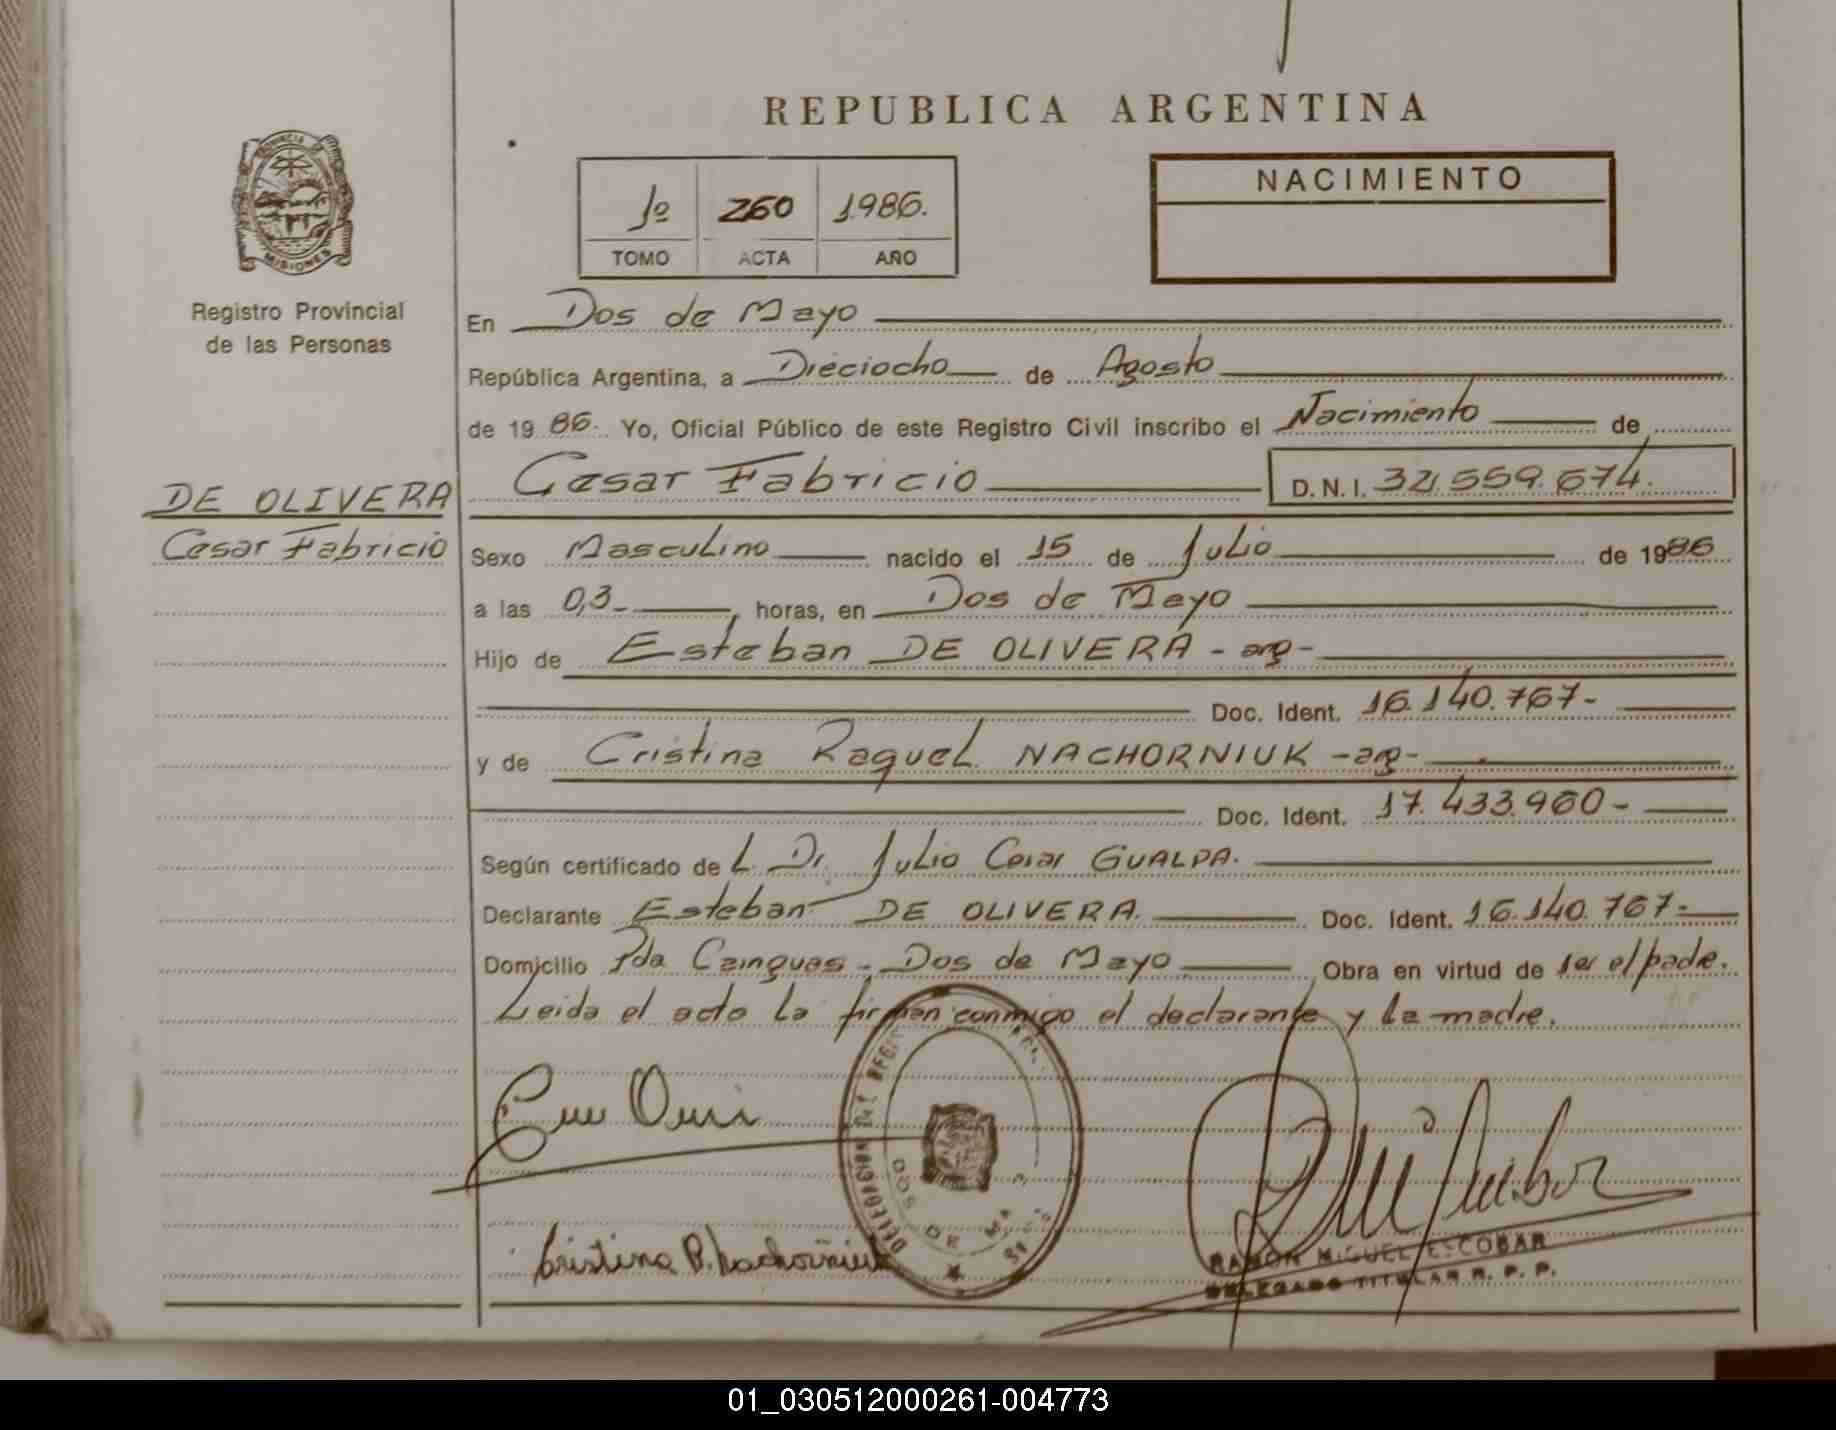 REPUBLICA ARGENTINA
PROVINCIA DE
MISIONES
Registro Provincial
de las Personas
1º 260 1986.
TOMO ACTA AÑO
NACIMIENTO
En Dos de Mayo
República Argentina, a Dieciocho de Agosto
de 19 86. Yo, Oficial Público de este Registro Civil inscribo el Nacimiento de
Cesar Fabricio D. N. I. 32.559.674.
DE OLIVERA
Cesar Fabricio
Sexo Masculino nacido el 15 de Julio de 1986
a las 0,3- horas, en Dos de Mayo
Hijo de Esteban DE OLIVERA - arg -
Doc. Ident. 16.140.767-
y de Cristina Raquel NACHORNIUK - arg -
Doc. Ident. 17.433.960-
Según certificado de L. Dr. Julio Cesar GUALPA.
Declarante Esteban DE OLIVERA. Doc. Ident. 16.140.767-
Domicilio Pda Cainguas - Dos de Mayo Obra en virtud de ser el padre.
Leida el acto la firman conmigo el declarante y la madre.
DELEGACION DEL REGIS
DOS DE MAYO
Cristina R. Nachorniuk
RAMON MIGUEL ESCOBAR
DELEGADO TITULAR R. P. P.
01_030512000261-004773